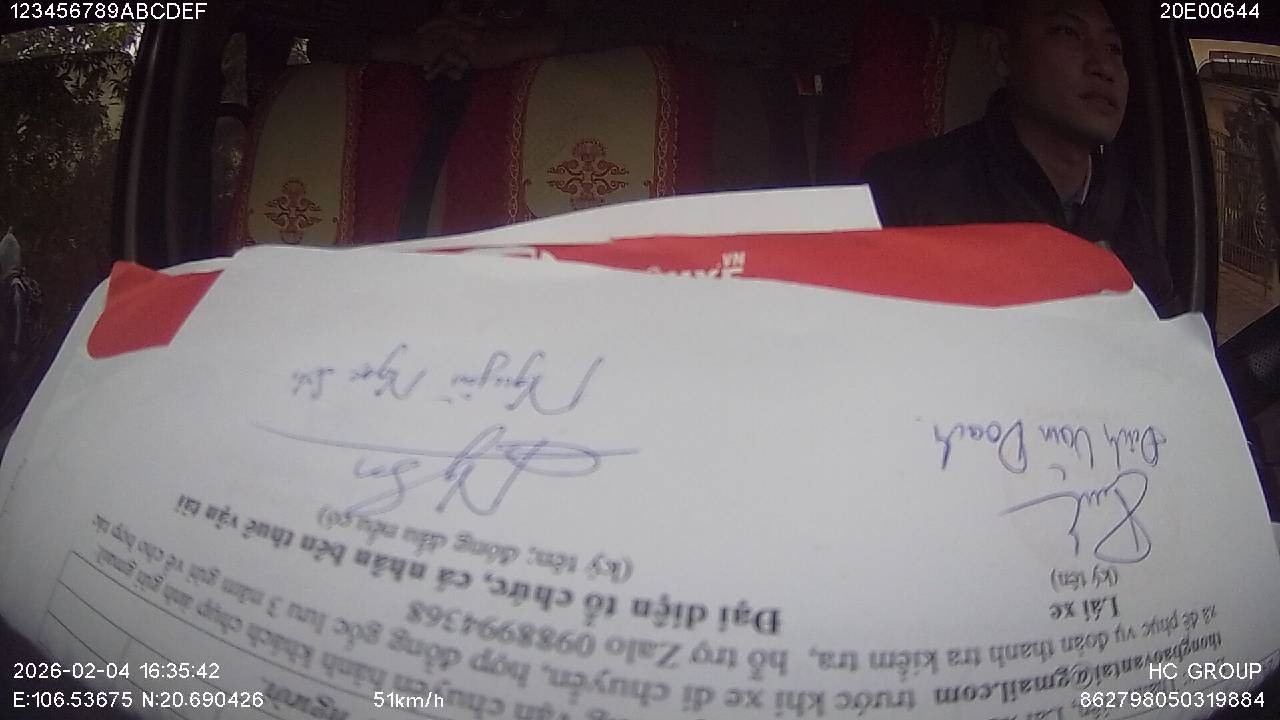 123456789ABCDEF
20E00644
VN
Nguyễn Ngọc
Đinh Văn Doanh
(ký tên, đóng dấu nếu có)
(ký tên)
Đại diện tổ chức, cá nhân bên thuê vận tải
Lái xe
xã để phục vụ đoàn thanh tra kiểm tra, hỗ trợ Zalo 0988994368
thongbaovantai@gmail.com trước khi xe di chuyển, hợp đồng gốc lưu 3 năm gửi về cho hợp tác
vận chuyển hành khách chụp ảnh gửi gmail
người.
2026-02-04 16:35:42
E:106.53675 N:20.690426
51km/h
HC GROUP
862798050319884